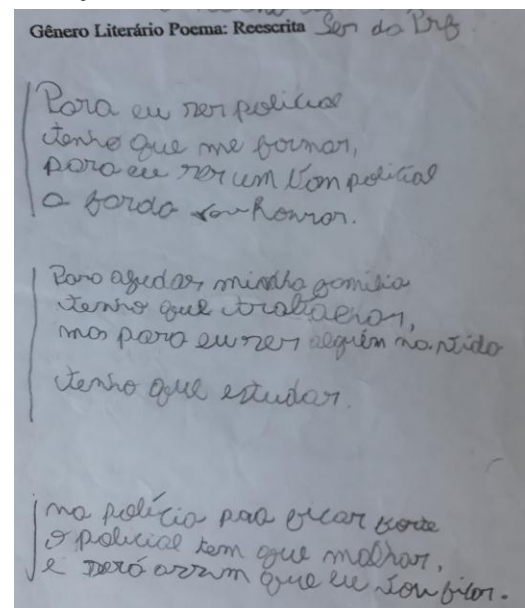 Gênero Literário Poema: Reescrita Ser da Prf
Para eu ser policial
tenho que me formar,
para eu ser um bom policial
a farda vou honrar.
Para ajudar minha familia
tenho que trabalhar,
mas para eu ser alguém na vida
tenho que estudar.
na polícia para ficar forte
o policial tem que malhar,
e será assim que eu vou ficar.